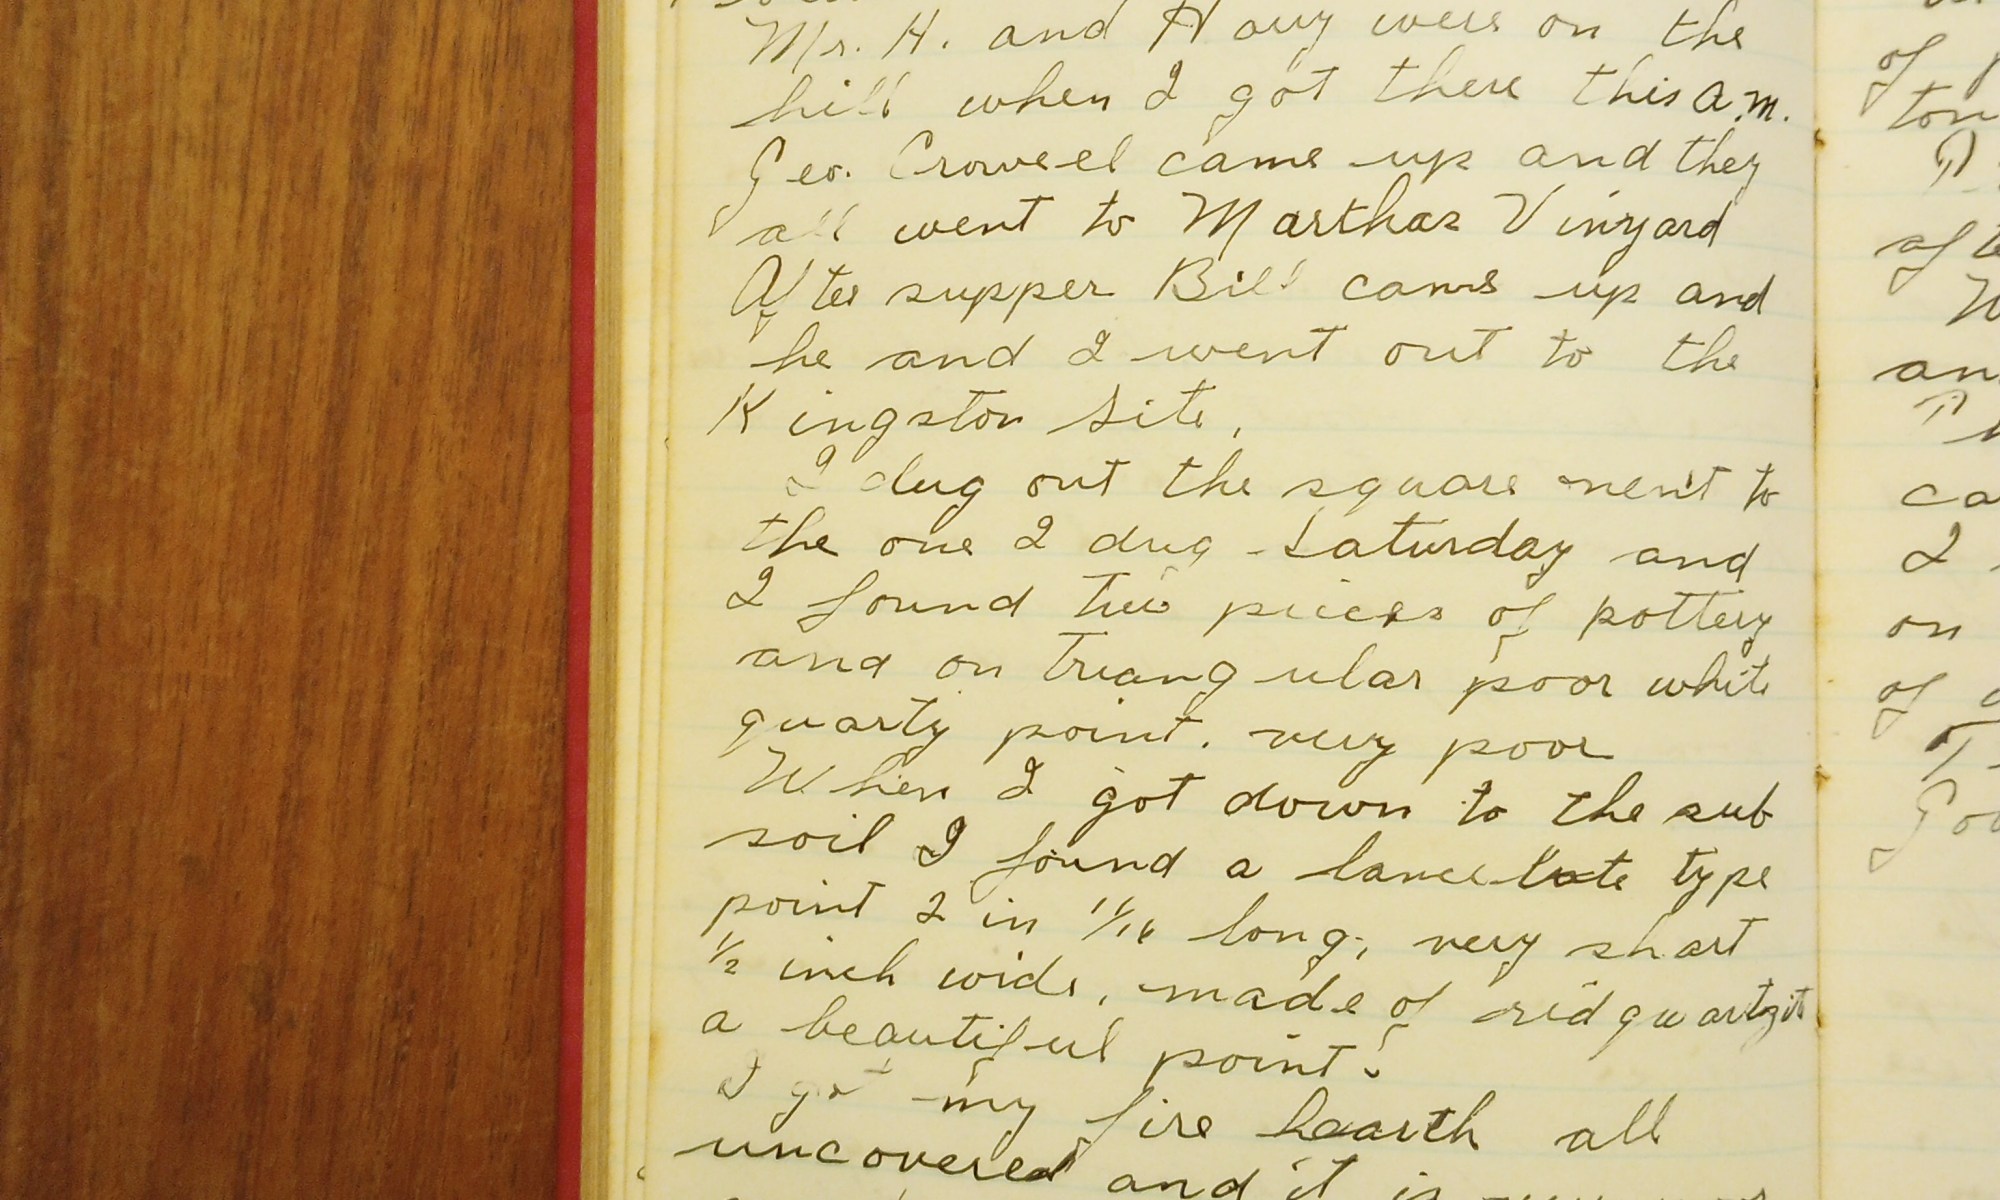 Mr. H. and Harry were on the
hill when I got there this a.m.
Geo. Croweel came up and they
all went to Marthas Vinyard
After supper Bill came up and
he and I went out to the
Kingston Site.
I dug out the square next to
the one I dug Saturday and
I found two pieces of pottery
and on triangular poor white
quartz point. very poor
When I got down to the sub
soil I found a lancelate type
point 2 in 11/16 long, very short
1/2 inch wide, made of red quartzite
a beautiful point.
I got my fire hearth all
uncovered and it is
of
ton
afte
an
ca
I
on
of